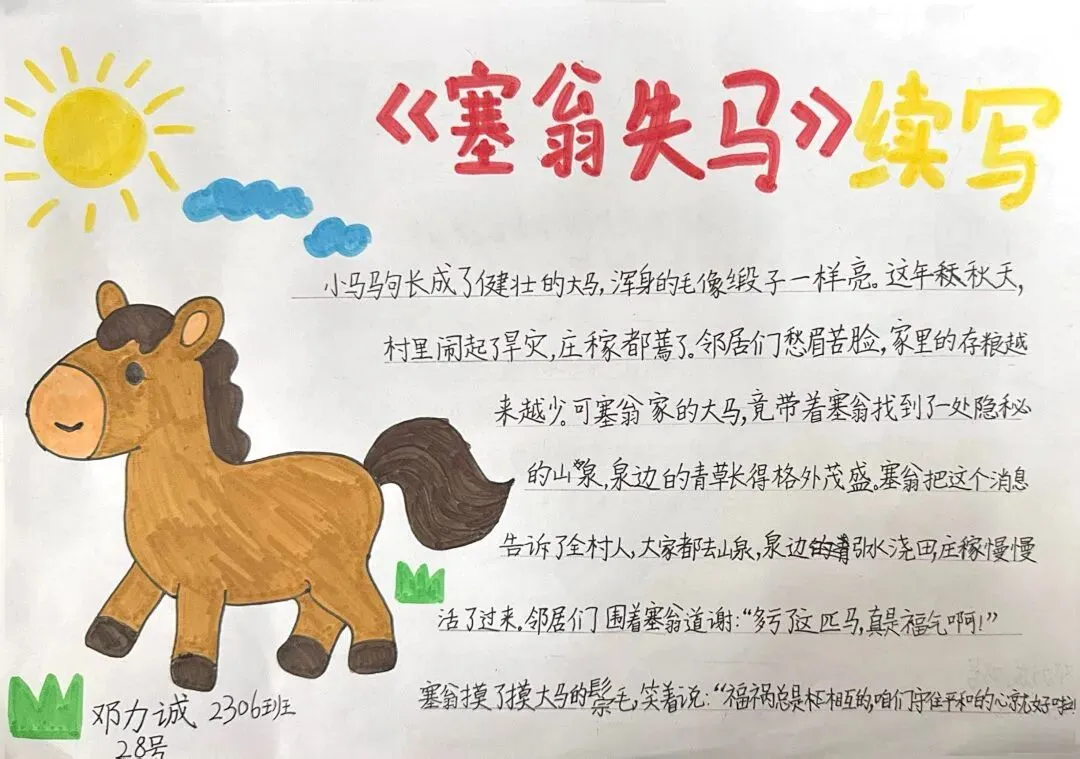 《塞翁失马》续写
小马驹长成了健壮的大马，浑身的毛像缎子一样亮。这年秋天，
村里闹起了旱灾，庄稼都蔫了。邻居们愁眉苦脸，家里的存粮越
来越少。可塞翁家的大马，竟带着塞翁找到了一处隐秘
的山泉，泉边的青草长得格外茂盛。塞翁把这个消息
告诉了全村人，大家都去山泉，泉边引水浇田，庄稼慢慢
活了过来。邻居们围着塞翁道谢：“多亏了这匹马，真是福气啊！”
塞翁摸了摸大马的鬃毛，笑着说：“福祸总是相互的，咱们守住平和的心就好啦！
邓力诚 2306班
28号